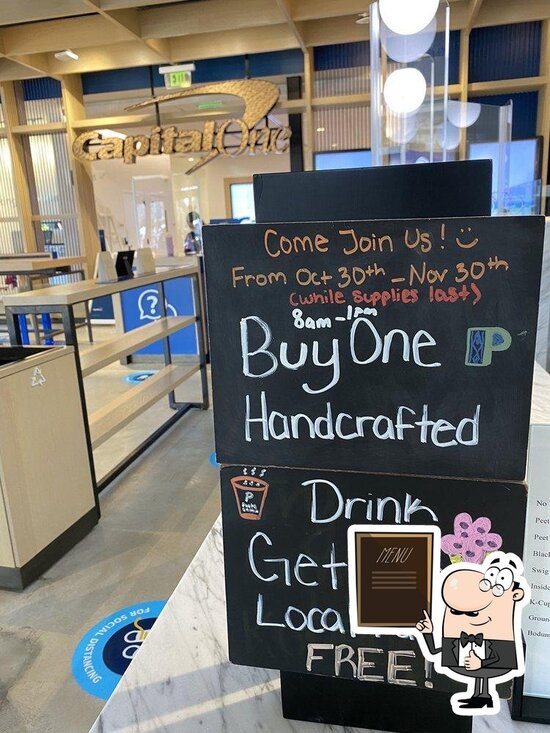 Capital One
Come Join Us!
From Oct 30th - Nov 30th
(while supplies last)
8am-1pm
Buy One
Handcrafted
Drink
Get
Loca
FREE!
MENU
P
FOR SOCIAL DISTANCING
No
Peet
Peet
Black
Swig
Inside
K-Cup
Groun
Bodum